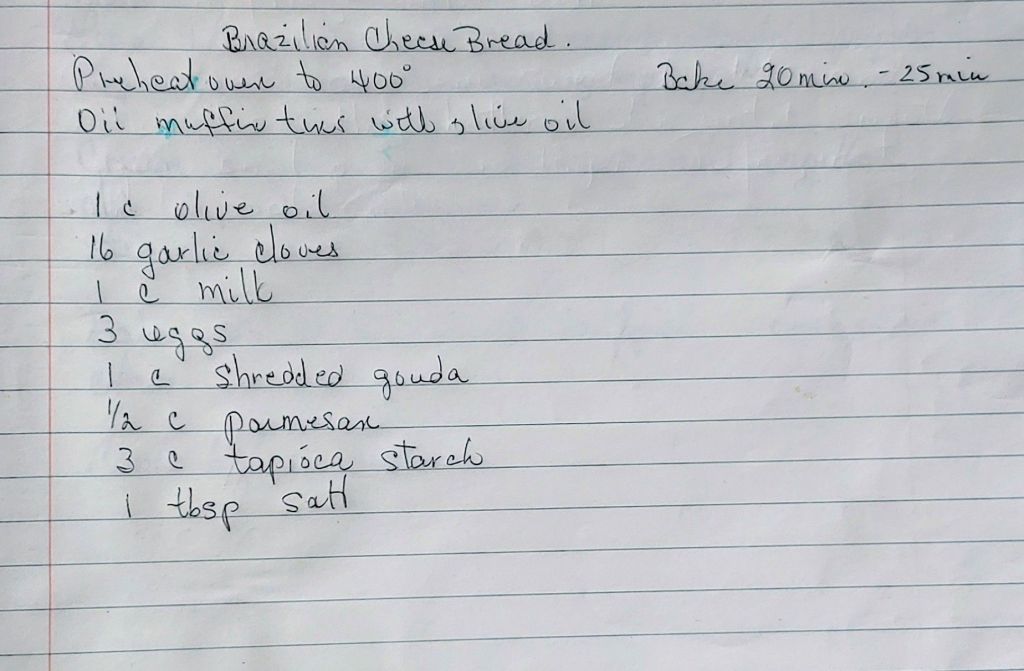 Brazilian Cheese Bread.
Preheat oven to 400°
Bake 20 min. - 25 min
Oil muffin tins with olive oil
1 c olive oil
16 garlic cloves
1 c milk
3 eggs
1 c shredded gouda
1/2 c parmesan
3 c tapioca starch
1 tbsp salt